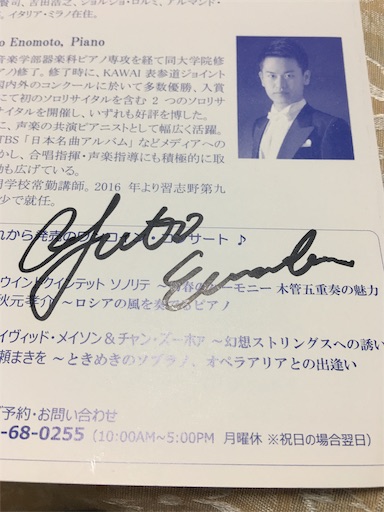 賢司、吉田浩之、ジョルジョ・ロルミ、アルマンド・
、イタリア・ミラノ在住。
o Enomoto, Piano
音楽学部器楽科ピアノ専攻を経て同大学院修
ノ修了。修了時に、KAWAI 表参道ジョイント
国内外のコンクールに於いて多数優勝、入賞
にて初のソロリサイタルを含む 2 つのソロリサ
サイタルを開催し、いずれも好評を博した。
に、声楽の共演ピアニストとして幅広く活躍。
TBS「日本名曲アルバム」などメディアへの
かし、合唱指揮・声楽指導にも積極的に取
動も広げている。
明学校常勤講師。2016 年より習志野第九
少で就任。
Yuto Enomoto
れから発売の サート ♪
ウイントクィンテット ソノリテ ～ 春の ーモニー 木管五重奏の魅力
秋元孝介 ～ロシアの風を奏でるピアノ
イヴィッド・メイソン＆チャン・ズーホァ ～幻想ストリングスへの誘い
頼まきを ～ときめきのソプラノ、オペラアリアとの出逢い
ご予約・お問い合わせ
-68-0255 (10:00AM～5:00PM 月曜休 ※祝日の場合翌日)